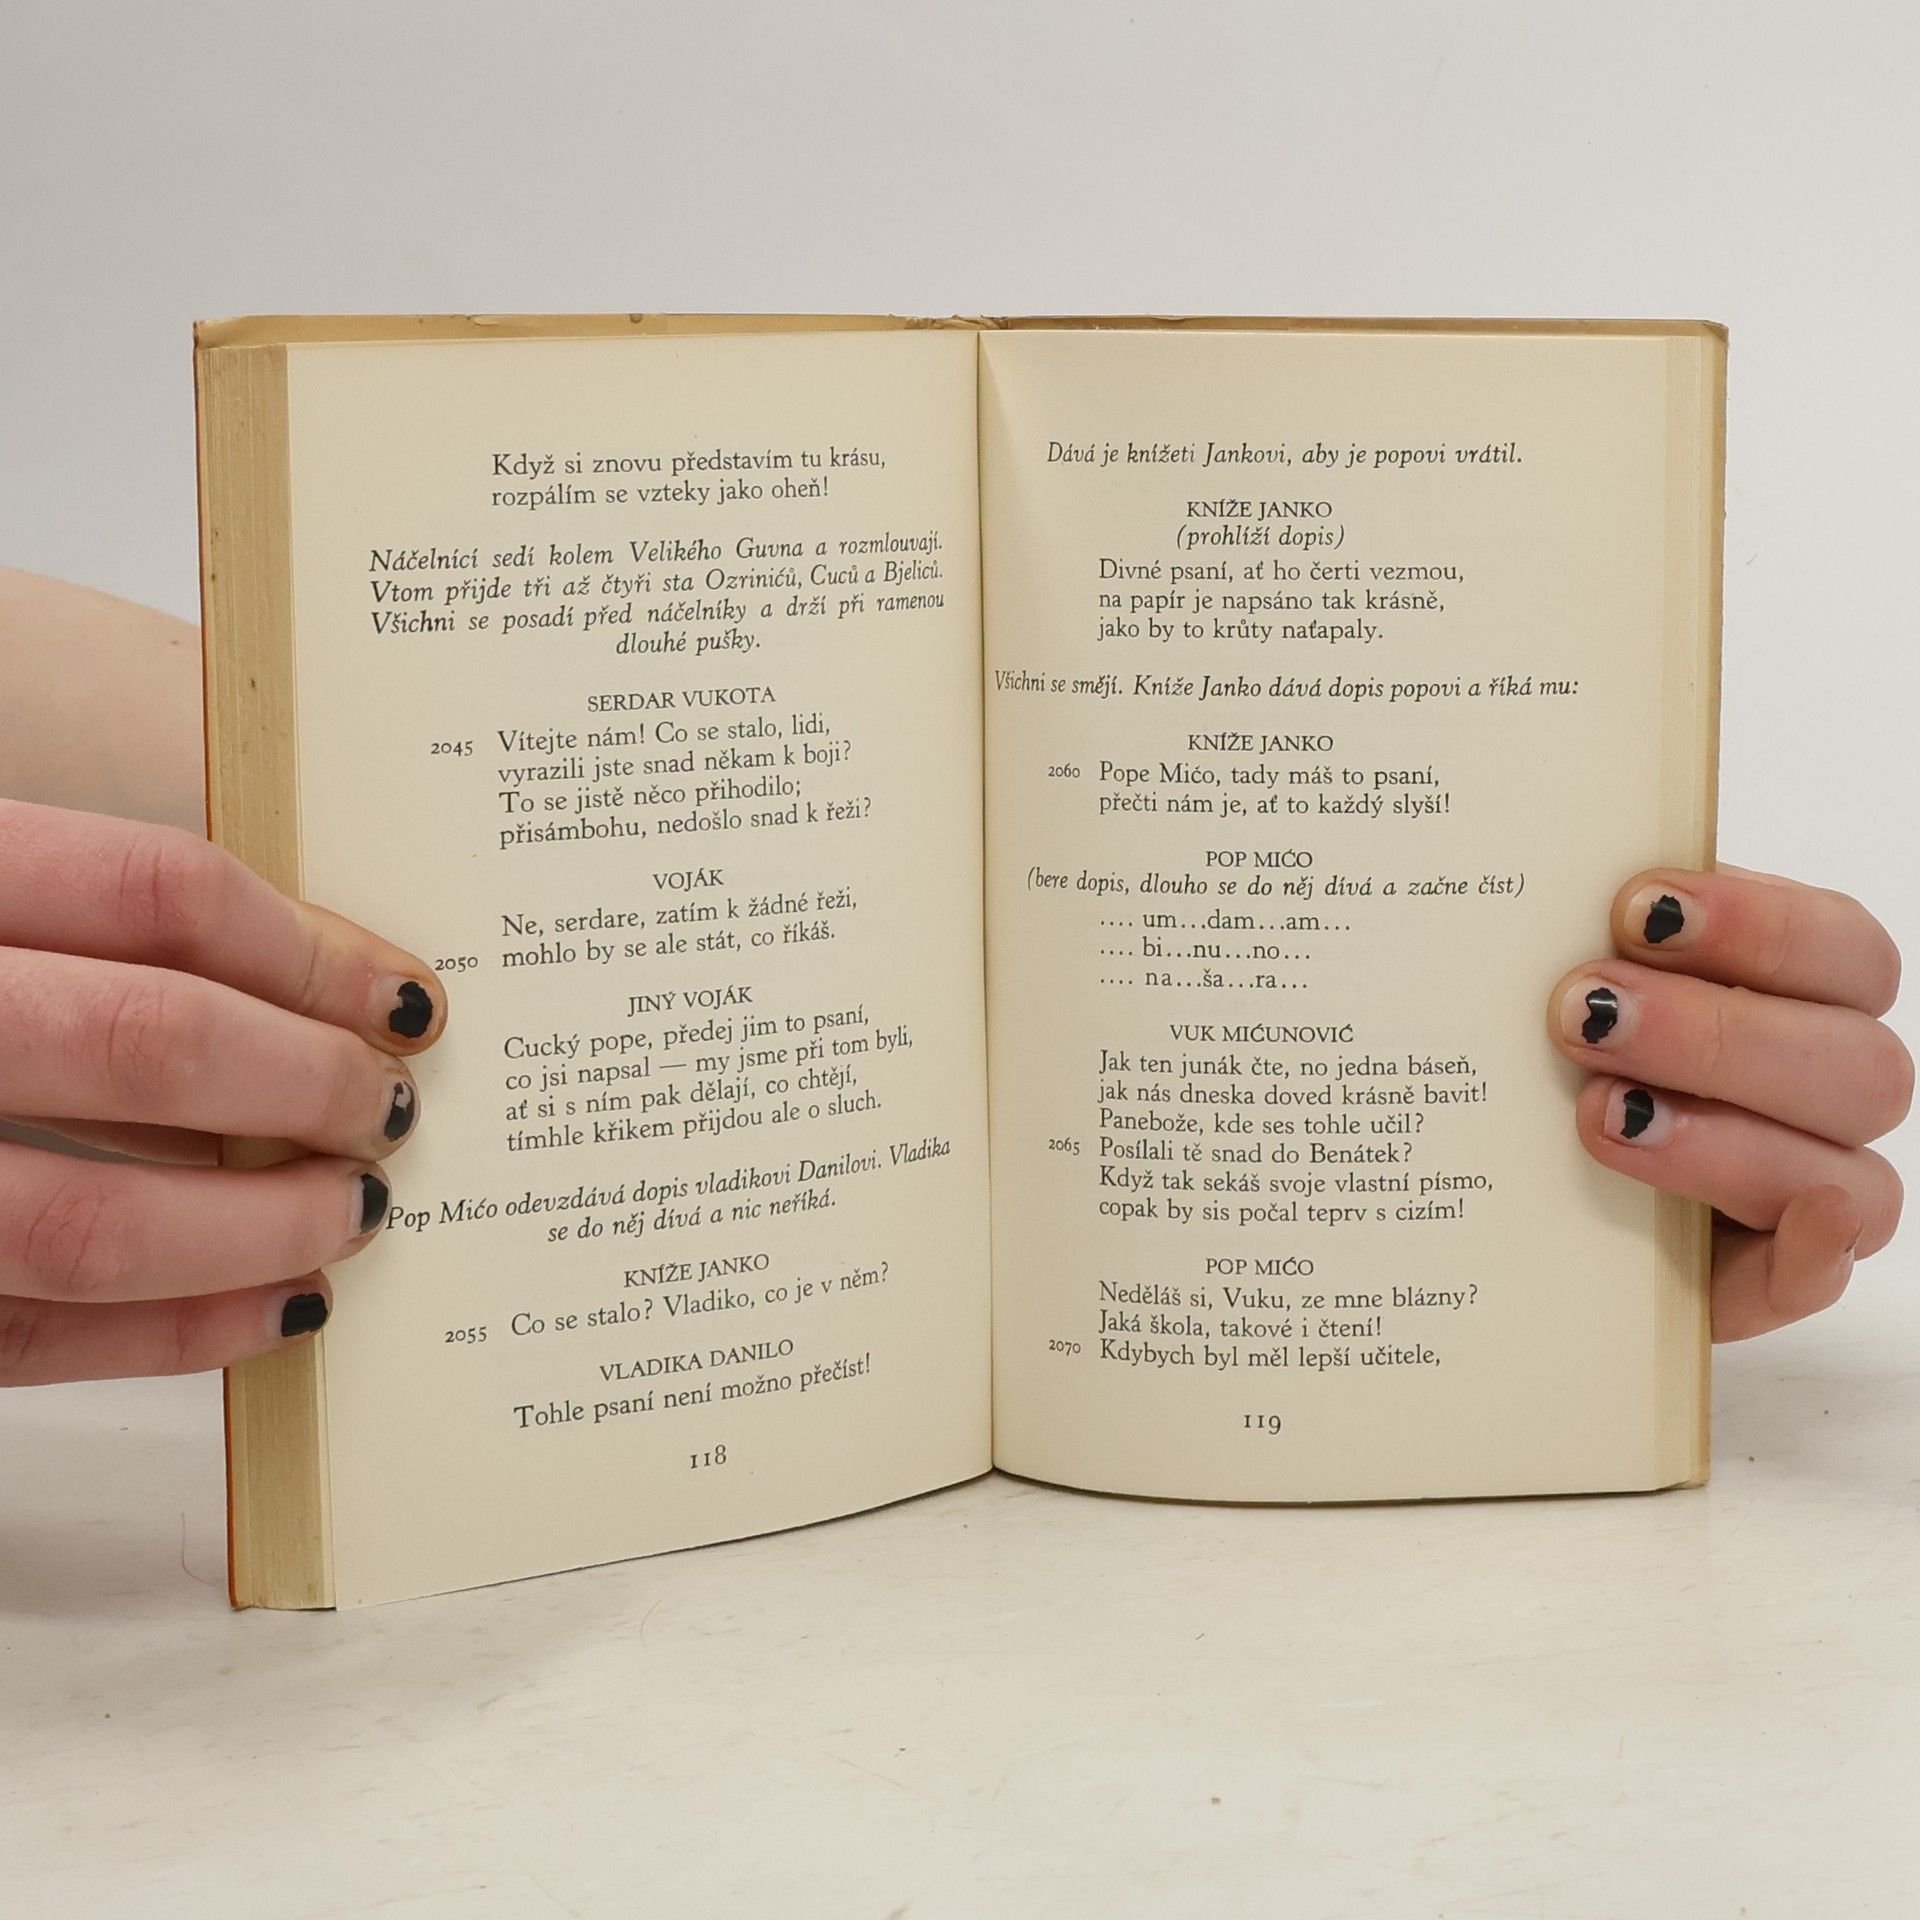 Když si znovu představím tu krásu,
rozpálím se vzteky jako oheň!
Náčelníci sedí kolem Velikého Guvna a rozmlouvají.
Vtom přijde tři až čtyři sta Ozrinićů, Cuců a Bjeliců.
Všichni se posadí před náčelníky a drží při ramenou
dlouhé pušky.
SERDAR VUKOTA
2045 Vítejte nám! Co se stalo, lidi,
vyrazili jste snad někam k boji?
To se jistě něco přihodilo;
přisámbohu, nedošlo snad k řeži?
VOJÁK
Ne, serdare, zatím k žádné řeži,
2050 mohlo by se ale stát, co říkáš.
JINÝ VOJÁK
Cucký pope, předej jim to psaní,
co jsi napsal — my jsme při tom byli,
ať si s ním pak dělají, co chtějí,
tímhle křikem přijdou ale o sluch.
Pop Mićo odevzdává dopis vladikovi Danilovi. Vladika
se do něj dívá a nic neříká.
KNÍŽE JANKO
2055 Co se stalo? Vladiko, co je v něm?
VLADIKA DANILO
Tohle psaní není možno přečíst!
118
Dává je knížeti Jankovi, aby je popovi vrátil.
KNÍŽE JANKO
(prohlíží dopis)
Divné psaní, ať ho čerti vezmou,
na papír je napsáno tak krásně,
jako by to krůty naťapaly.
Všichni se smějí. Kníže Janko dává dopis popovi a říká mu:
KNÍŽE JANKO
2060 Pope Mićo, tady máš to psaní,
přečti nám je, ať to každý slyší!
POP MIĆO
(bere dopis, dlouho se do něj dívá a začne číst)
.... um...dam...am...
.... bi...nu...no...
.... na...ša...ra...
VUK MIĆUNOVIĆ
Jak ten junák čte, no jedna báseň,
jak nás dneska doved krásně bavit!
Panebože, kde ses tohle učil?
2065 Posílali tě snad do Benátek?
Když tak sekáš svoje vlastní písmo,
copak by sis počal teprv s cizím!
POP MIĆO
Neděláš si, Vuku, ze mne blázny?
Jaká škola, takové i čtení!
2070 Kdybych byl měl lepší učitele,
119